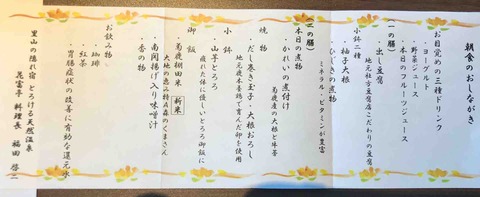 朝食のおしながき
お目覚めの三種ドリンク
・ヨーグルト
・野菜ジュース
・本日のフルーツジュース
(一の膳)
・出し豆腐
地元社方豆腐店こだわりの豆腐
小鉢二種
・柚子大根
・ひじきの煮物
ミネラル・ビタミンが豊富
(二の膳)
本日の煮物
・かれいの煮付け
菊鹿産の大根と牛蒡
焼物
・だし巻き玉子 大根おろし
地元鹿北養鶏で育んだ卵を使用
小鉢
・山芋とろろ
疲れた体に優しいとろろ御飯に
御飯
菊鹿棚田米 新米
大地の恵み特A森のくまさん
・南関揚げ入り味噌汁
・香の物
お飲み物
・珈琲
・紅茶
・胃腸症状の改善に有効な還元水
里山の隠れ宿 とろける天然温泉
花富亭 料理長 福田 啓二